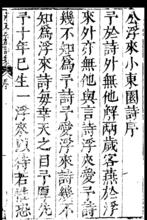 公浮來小東園詩序
予於詩外無他解兩歲客燕於浮
來外亦無他與言詩浮來愛予詩
幾不知為予詩予愛浮來詩幾不
知為浮來詩毎幸天之目予厚先
予十年已生一浮來以待若